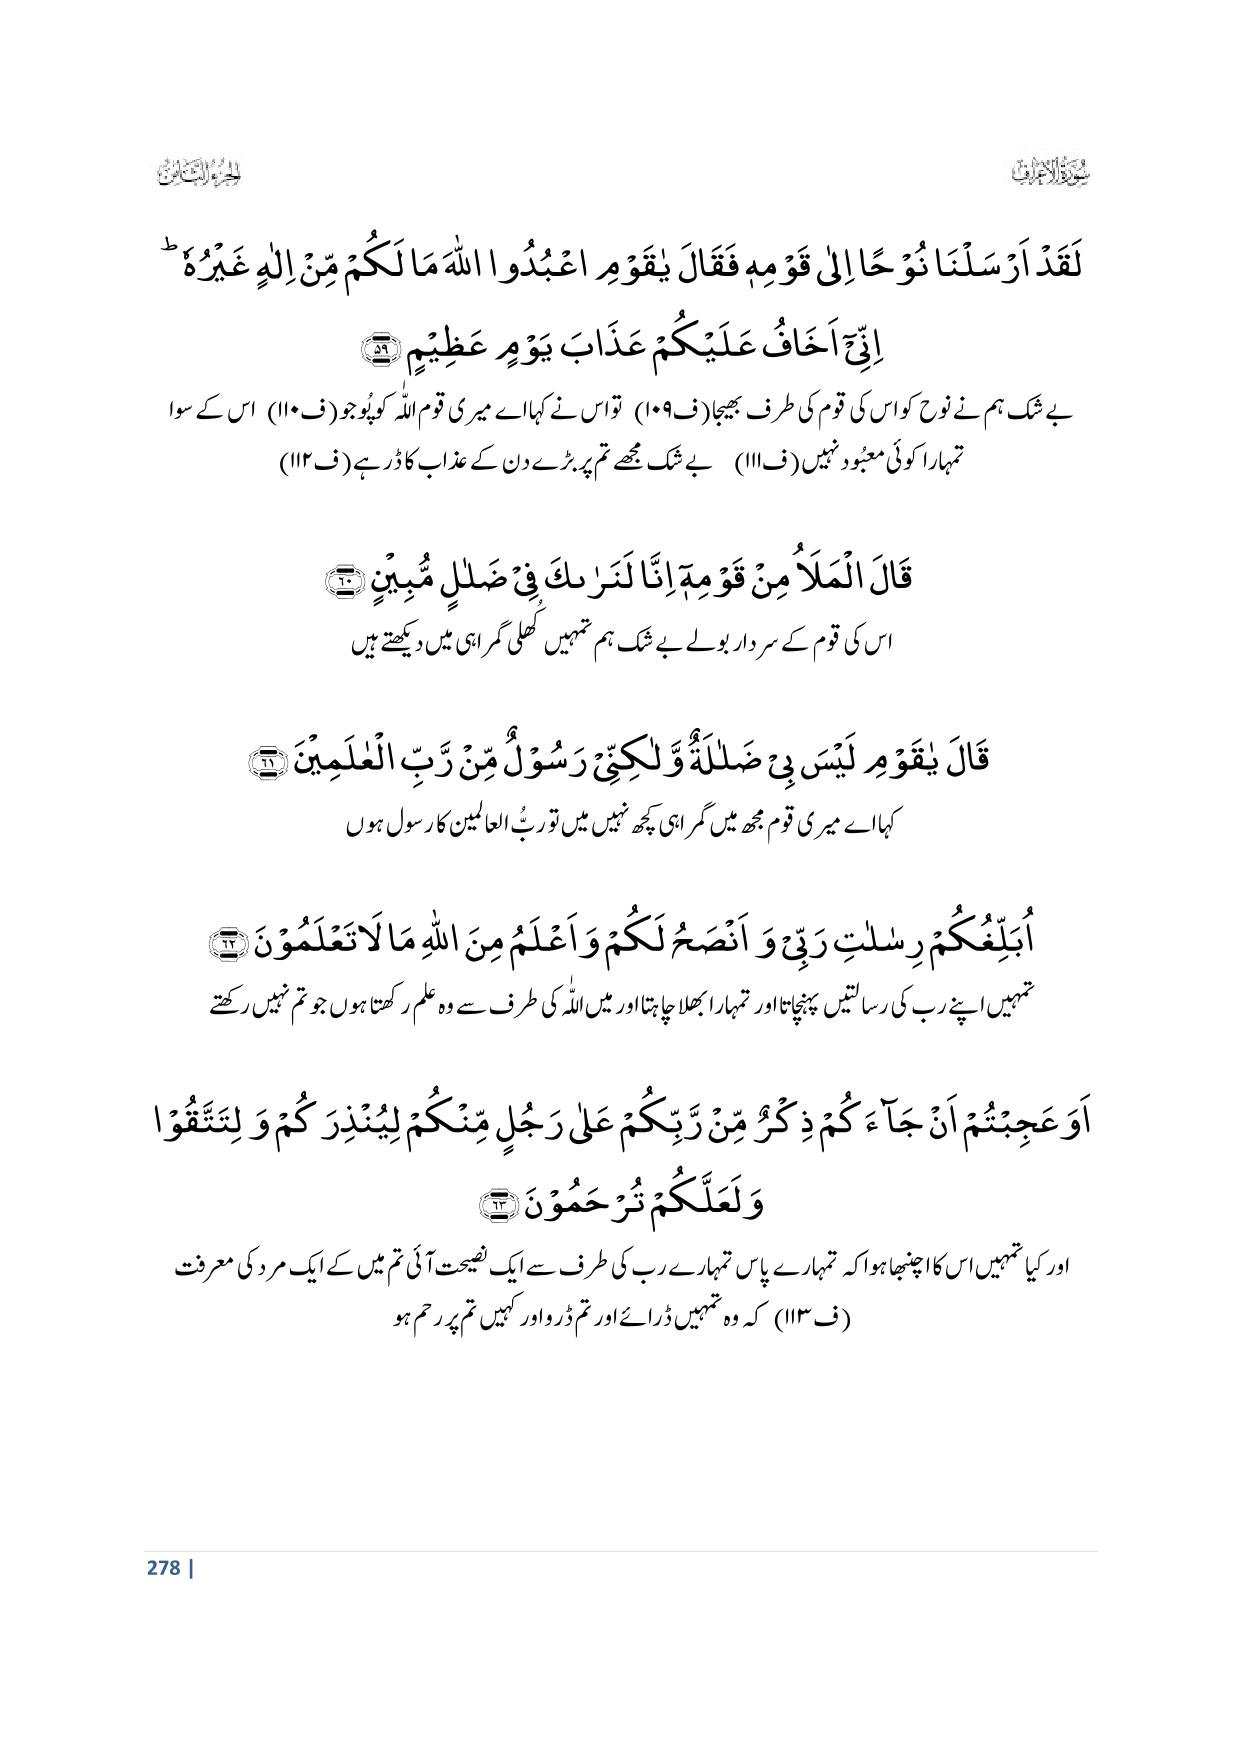 سُوْرَةُ الْاَعْرَاف
الجزء الثامن
لَقَدْ اَرْسَلْنَا نُوْحًا اِلٰى قَوْمِهٖ فَقَالَ يٰقَوْمِ اعْبُدُوا اللّٰهَ مَا لَكُمْ مِّنْ اِلٰهٍ غَيْرُهٗ ؕ
اِنِّیْۤ اَخَافُ عَلَيْكُمْ عَذَابَ يَوْمٍ عَظِيْمٍ ﴿۵۹﴾
بے شک ہم نے نوح کو اس کی قوم کی طرف بھیجا (ف۱۰۹) تو اس نے کہا اے میری قوم اللّٰہ کو پُوجو (ف۱۱۰) اس کے سوا
تمہارا کوئی معبُود نہیں (ف۱۱۱) بے شک مجھے تم پر بڑے دن کے عذاب کا ڈر ہے (ف۱۱۲)
قَالَ الْمَلَاُ مِنْ قَوْمِهٖۤ اِنَّا لَنَرٰىكَ فِیْ ضَلٰلٍ مُّبِيْنٍ ﴿۶۰﴾
اس کی قوم کے سردار بولے بے شک ہم تمہیں کُھلی گمراہی میں دیکھتے ہیں
قَالَ يٰقَوْمِ لَيْسَ بِیْ ضَلٰلَةٌ وَّلٰكِنِّیْ رَسُوْلٌ مِّنْ رَّبِّ الْعٰلَمِيْنَ ﴿۶۱﴾
کہا اے میری قوم مجھ میں گمراہی کچھ نہیں میں تو ربُّ العالمین کا رسول ہوں
اُبَلِّغُكُمْ رِسٰلٰتِ رَبِّیْ وَ اَنْصَحُ لَكُمْ وَ اَعْلَمُ مِنَ اللّٰهِ مَا لَا تَعْلَمُوْنَ ﴿۶۲﴾
تمہیں اپنے رب کی رسالتیں پہنچاتا اور تمہارا بھلا چاہتا اور میں اللّٰہ کی طرف سے وہ علم رکھتا ہوں جو تم نہیں رکھتے
اَوَ عَجِبْتُمْ اَنْ جَآءَكُمْ ذِكْرٌ مِّنْ رَّبِّكُمْ عَلٰى رَجُلٍ مِّنْكُمْ لِيُنْذِرَكُمْ وَ لِتَتَّقُوْا
وَ لَعَلَّكُمْ تُرْحَمُوْنَ ﴿۶۳﴾
اور کیا تمہیں اس کا اچنبھا ہوا کہ تمہارے پاس تمہارے رب کی طرف سے ایک نصیحت آئی تم میں کے ایک مرد کی معرفت
(ف۱۱۳) کہ وہ تمہیں ڈرائے اور تم ڈرو اور کہیں تم پر رحم ہو
278 |